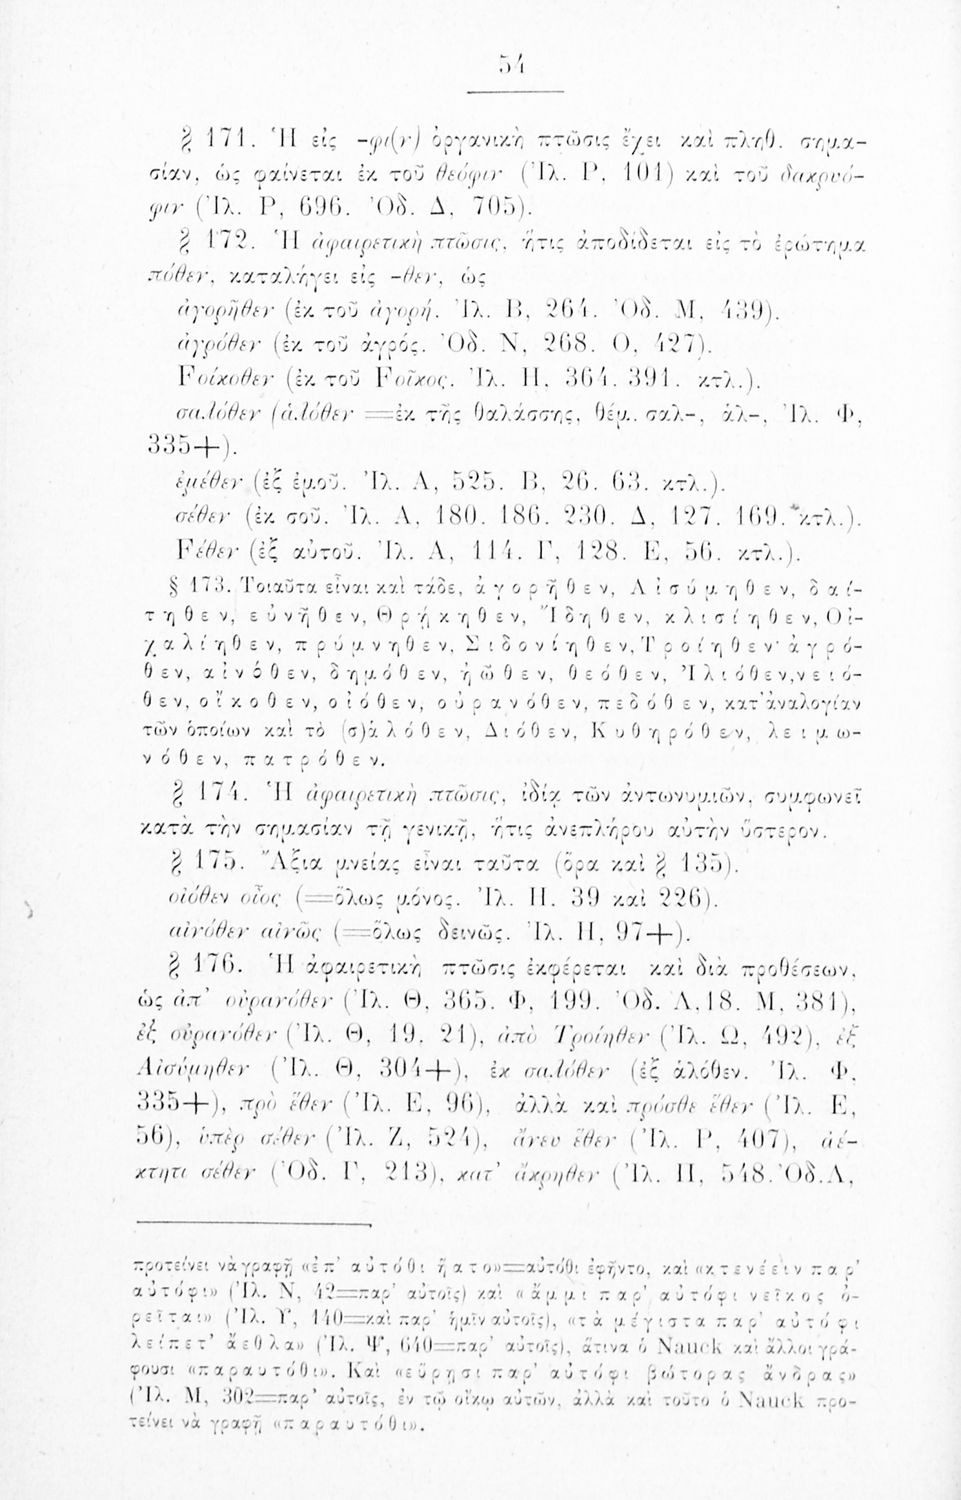 54
§ 171. Ἡ εἰς -φι(ν) ὀργανικὴ πτῶσις ἔχει καὶ πληθ. σημα-
σίαν, ὡς φαίνεται ἐκ τοῦ θεόφιν (Ἰλ. Ρ, 101) καὶ τοῦ δακρυό-
φιν (Ἰλ. Ρ, 696. Ὀδ. Δ, 705).
§ 172. Ἡ ἀφαιρετικὴ πτῶσις, ἥτις ἀποδίδεται εἰς τὸ ἐρώτημα
πόθεν, καταλήγει εἰς -θεν, ὡς
ἀγορῆθεν (ἐκ τοῦ ἀγορή. Ἰλ. Β, 264. Ὀδ. Μ, 439).
ἀγρόθεν (ἐκ τοῦ ἀγρός. Ὀδ. Ν, 268. Ο, 427).
Fοίκοθεν (ἐκ τοῦ Fοῖκος. Ἰλ. Π, 364. 391. κτλ.).
σαλόθεν (ἁλόθεν =ἐκ τῆς θαλάσσης, θέμ. σαλ-, ἁλ-, Ἰλ. Φ,
335+).
ἐμέθεν (ἐξ ἐμοῦ. Ἰλ. Α, 525. Β, 26. 63. κτλ.).
σέθεν (ἐκ σοῦ. Ἰλ. Α, 180. 186. 230. Δ, 127. 169. κτλ.).
Fέθεν (ἐξ αὐτοῦ. Ἰλ. Α, 114. Γ, 128. Ε, 56. κτλ.).
§ 173. Τοιαῦτα εἶναι καὶ τάδε, ἀγορῆθεν, Αἰσύμηθεν, δαί-
τηθεν, εὐνῆθεν, Θρῄκηθεν, Ἴδηθεν, κλισίηθεν, Οἰ-
χαλίηθεν, πρύμνηθεν, Σιδονίηθεν, Τροίηθεν· ἀγρό-
θεν, αἰνόθεν, δημόθεν, ἠῶθεν, θεόθεν, Ἰλιόθεν, νειό-
θεν, οἴκοθεν, οἰόθεν, οὐρανόθεν, πεδόθεν, κατ' ἀναλογίαν
τῶν ὁποίων καὶ τὸ (σ)ἁλόθεν, Διόθεν, Κυθηρόθεν, λειμω-
νόθεν, πατρόθεν.
§ 174. Ἡ ἀφαιρετικὴ πτῶσις, ἰδίᾳ τῶν ἀντωνυμιῶν, συμφωνεῖ
κατὰ τὴν σημασίαν τῇ γενικῇ, ἥτις ἀνεπλήρου αὐτὴν ὕστερον.
§ 175. Ἄξια μνείας εἶναι ταῦτα (ὅρα καὶ § 135).
οἰόθεν οἶος (=ὅλως μόνος. Ἰλ. Η. 39 καὶ 226).
αἰνόθεν αἰνῶς (=ὅλως δεινῶς. Ἰλ. Η, 97+).
§ 176. Ἡ ἀφαιρετικὴ πτῶσις ἐκφέρεται καὶ διὰ προθέσεων,
ὡς ἀπ' οὐρανόθεν (Ἰλ. Θ, 365. Φ, 199. Ὀδ. Λ, 18. Μ, 381),
ἐξ οὐρανόθεν (Ἰλ. Θ, 19. 21), ἀπὸ Τροίηθεν (Ἰλ. Ω, 492), ἐξ
Αἰσύμηθεν (Ἰλ. Θ, 304+), ἐκ σαλόθεν (ἐξ ἁλόθεν. Ἰλ. Φ,
335+), πρὸ ἕθεν (Ἰλ. Ε, 96), ἀλλὰ καὶ πρόσθε ἕθεν (Ἰλ. Ε,
56), ὑπὲρ σέθεν (Ἰλ. Ζ, 524), ἄνευ ἕθεν (Ἰλ. Ρ, 407), ἀέ-
κητι σέθεν (Ὀδ. Γ, 213), κατ' ἄκρηθεν (Ἰλ. Π, 548. Ὀδ. Λ,
προτείνει νὰ γραφῇ «ἐπ' αὐτόθι ἥατο»=αὐτόθι ἐφῆντο, καὶ «κτενέειν παρ'
αὐτόφι» (Ἰλ. Ν, 42=παρ' αὐτοῖς) καὶ «ἄμμι παρ' αὐτόφι νεῖκος ὀ-
ρεῖται» (Ἰλ. Υ, 140=καὶ παρ' ἡμῖν αὐτοῖς), «τὰ μέγιστα παρ' αὐτόφι
λείπετ' ἄεθλα» (Ἰλ. Ψ, 640=παρ' αὐτοῖς), ἅτινα ὁ Nauck καὶ ἄλλοι γρά-
φουσι «παραυτόθι». Καὶ «εὕρησι παρ' αὐτόφι βώτορας ἄνδρας»
(Ἰλ. Μ, 302=παρ' αὐτοῖς, ἐν τῷ οἴκῳ αὐτῶν, ἀλλὰ καὶ τοῦτο ὁ Nauck προ-
τείνει νὰ γραφῇ «παραυτόθι».